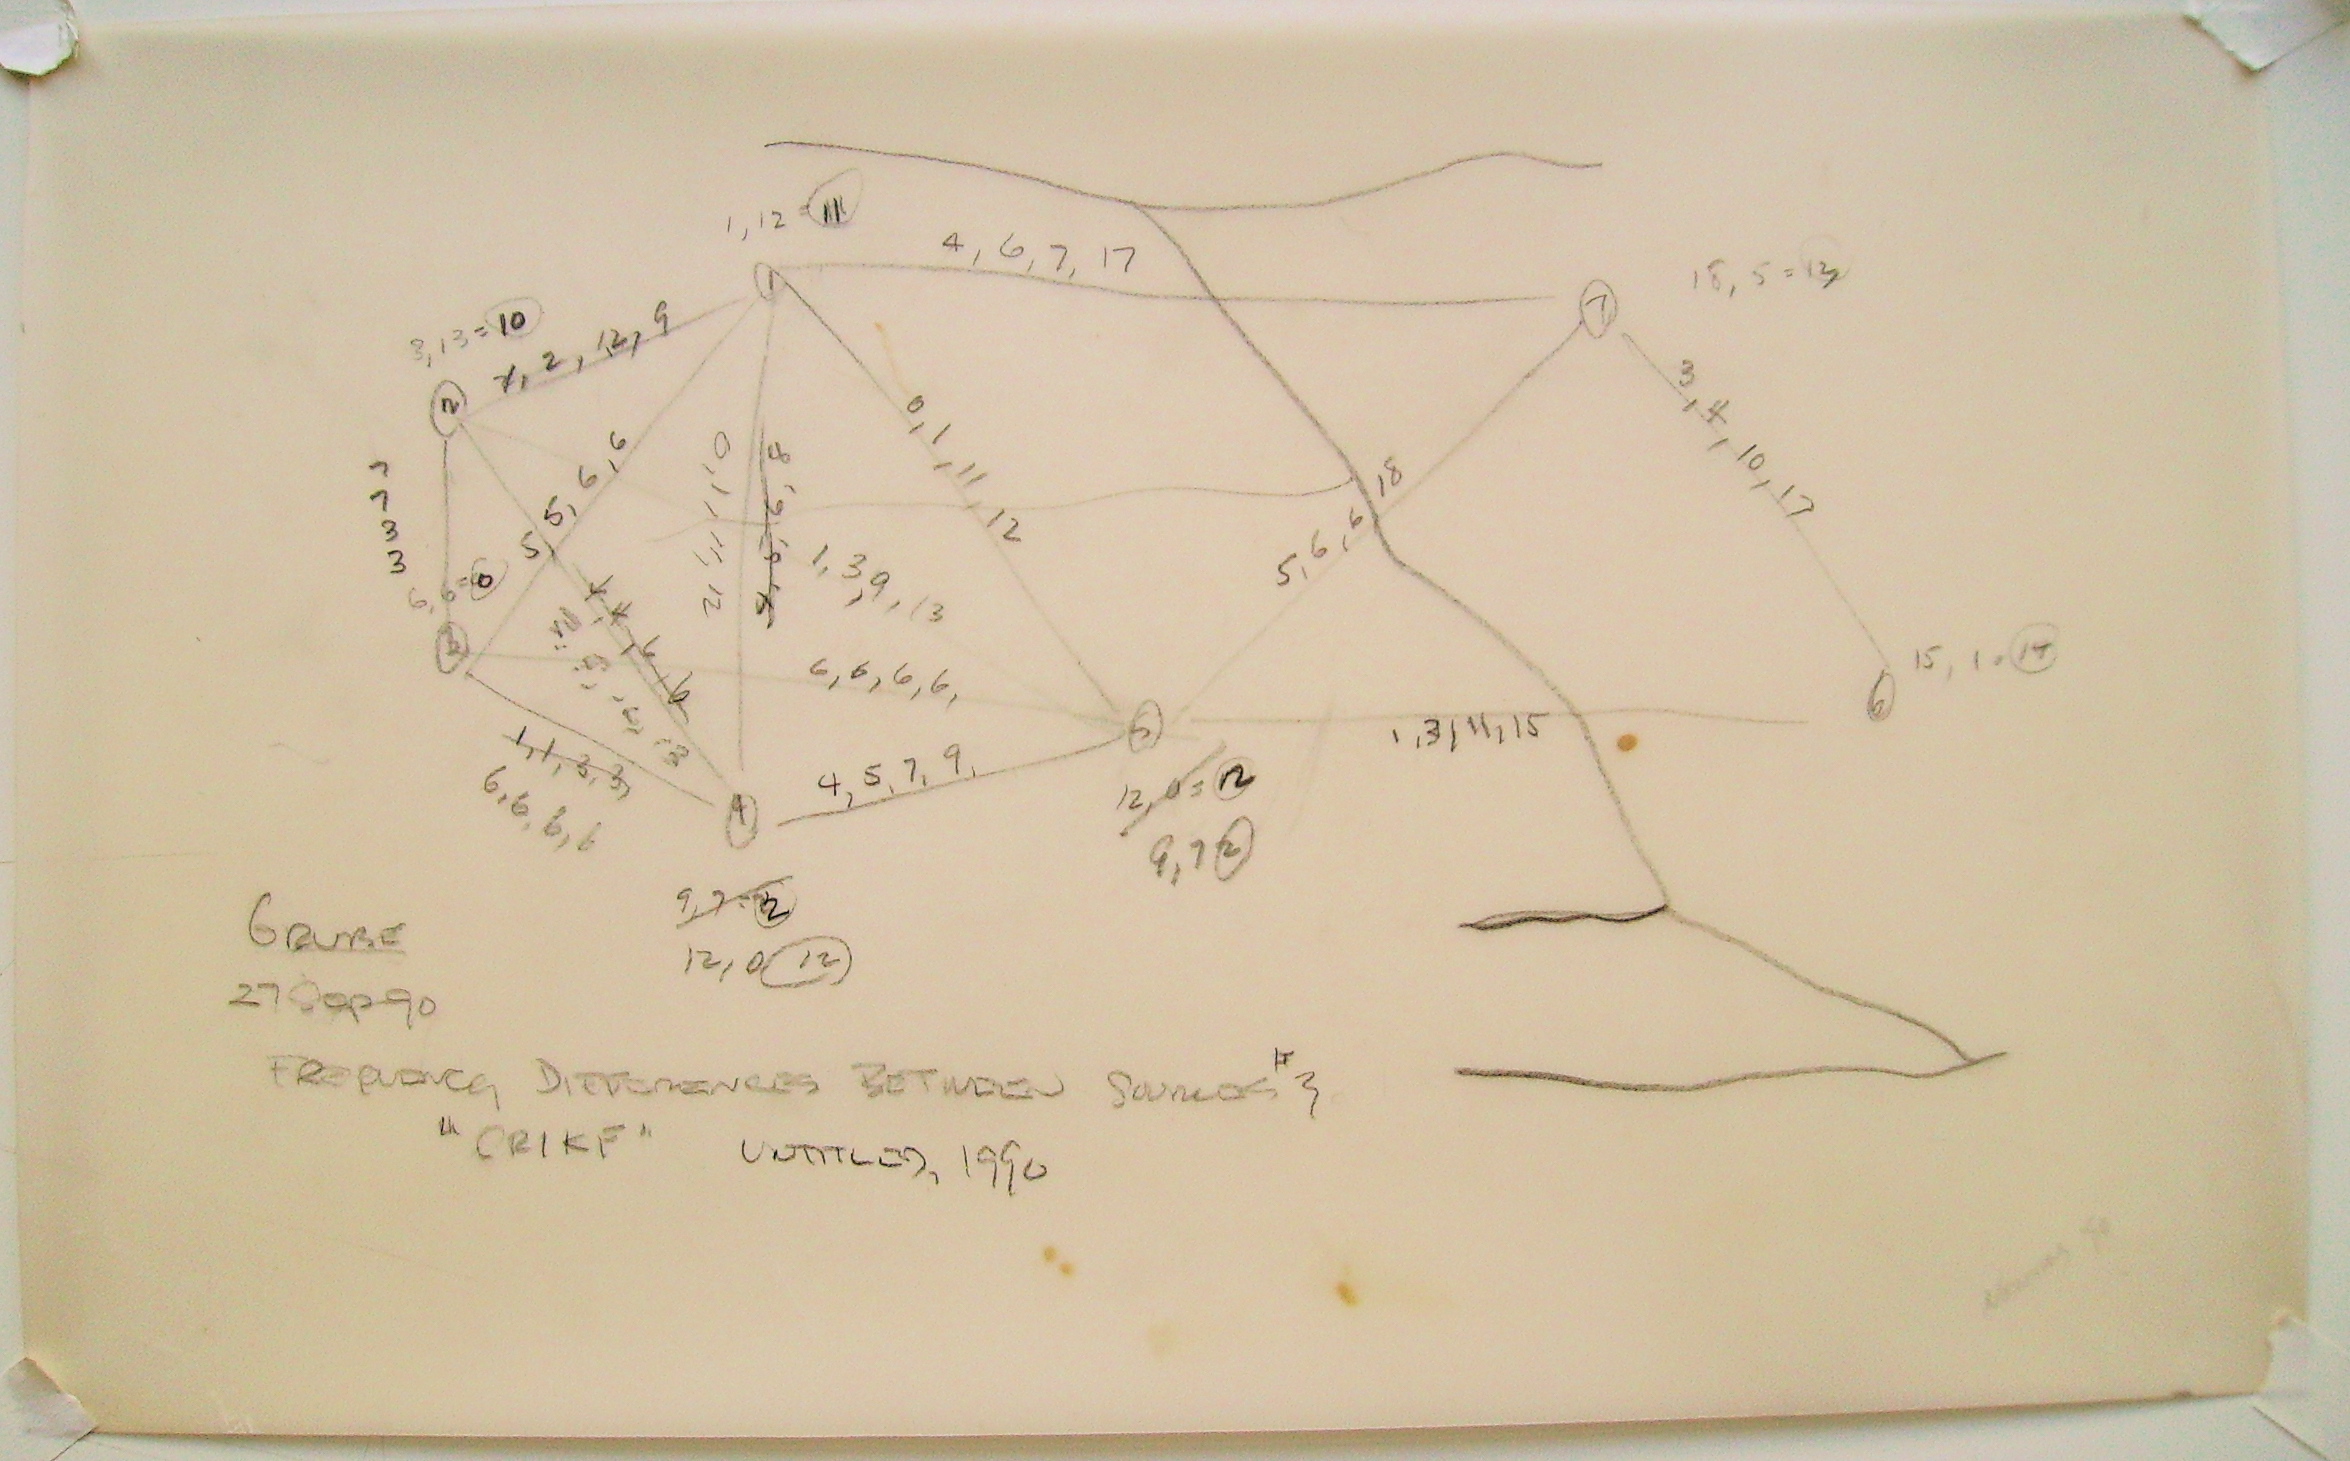 1, 12 = 11
4, 6, 7, 17
1
7
18, 5 = 13
3, 13 = 10
2, 12, 9
2
3, 4, 10, 17
0, 1, 11, 12
5, 5, 6, 6
18
5, 6, 6
7
7
3
3
6, 6 = 0
3
1, 3, 9, 13
6, 6, 6, 6,
15, 1 = 14
6
5
1, 3, 11, 15
1, 1, 3, 3,
6, 6, 6, 6
4, 5, 7, 9,
4
12, 0 = 12
9, 7 2
9, 7 = 2
12, 0 12
GRUBE
27 Sep 90
FREQUENCY DIFFERENCES BETWEEN SOURCES
"CRIKF" UNTITLED, 1990